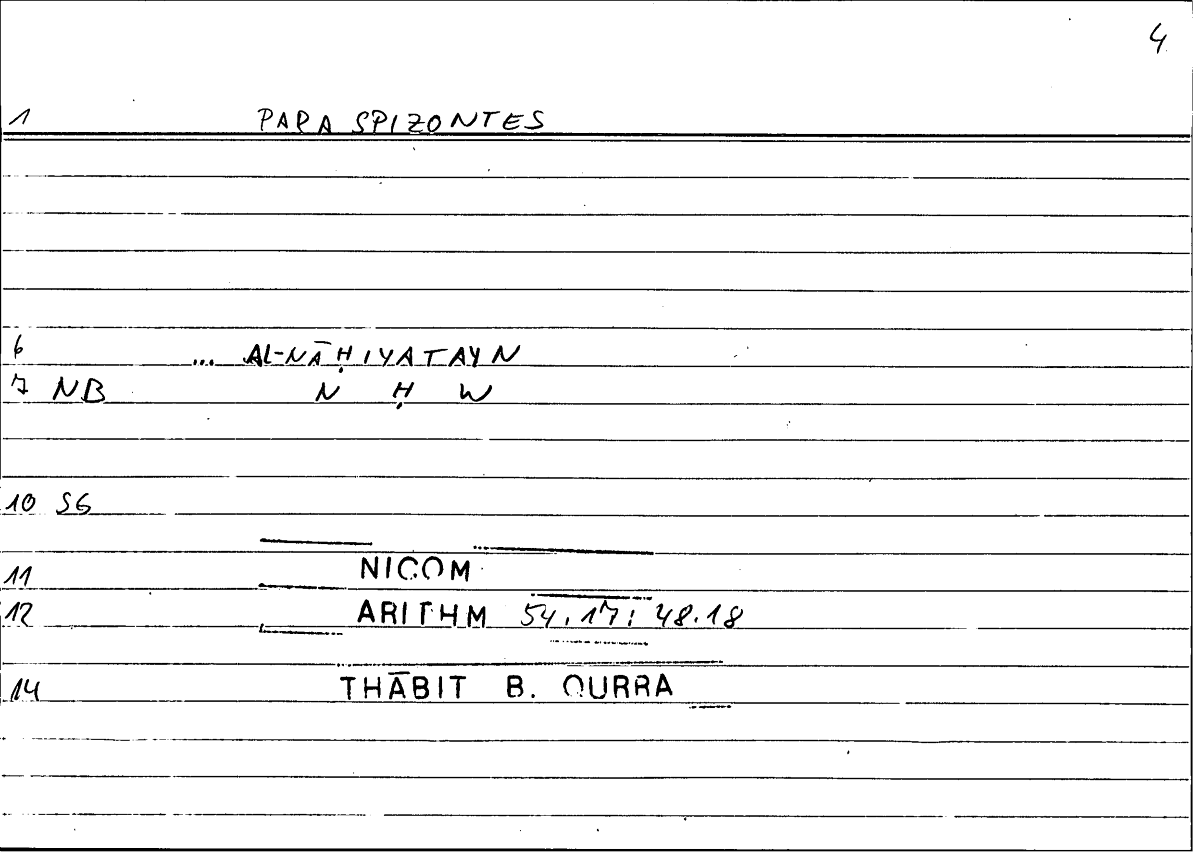 4
1 PARA SPIZONTES
6 ... AL-NĀḤIYATAYN
7 NB N Ḥ W
10 SG
11 NICOM
12 ARITHM 54.17; 48.18
14 THĀBIT B. QURRA